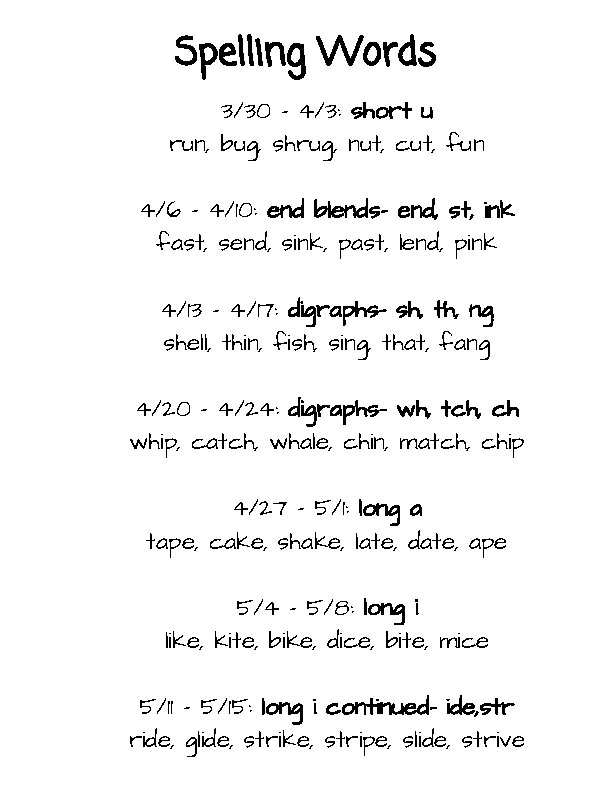 Spelling Words
3/30 - 4/3: short u
run, bug, shrug, nut, cut, fun
4/6 - 4/10: end blends- end, st, ink
fast, send, sink, past, lend, pink
4/13 - 4/17: digraphs- sh, th, ng
shell, thin, fish, sing, that, fang
4/20 - 4/24: digraphs- wh, tch, ch
whip, catch, whale, chin, match, chip
4/27 - 5/1: long a
tape, cake, shake, late, date, ape
5/4 - 5/8: long i
like, kite, bike, dice, bite, mice
5/11 - 5/15: long i continued- ide,str
ride, glide, strike, stripe, slide, strive